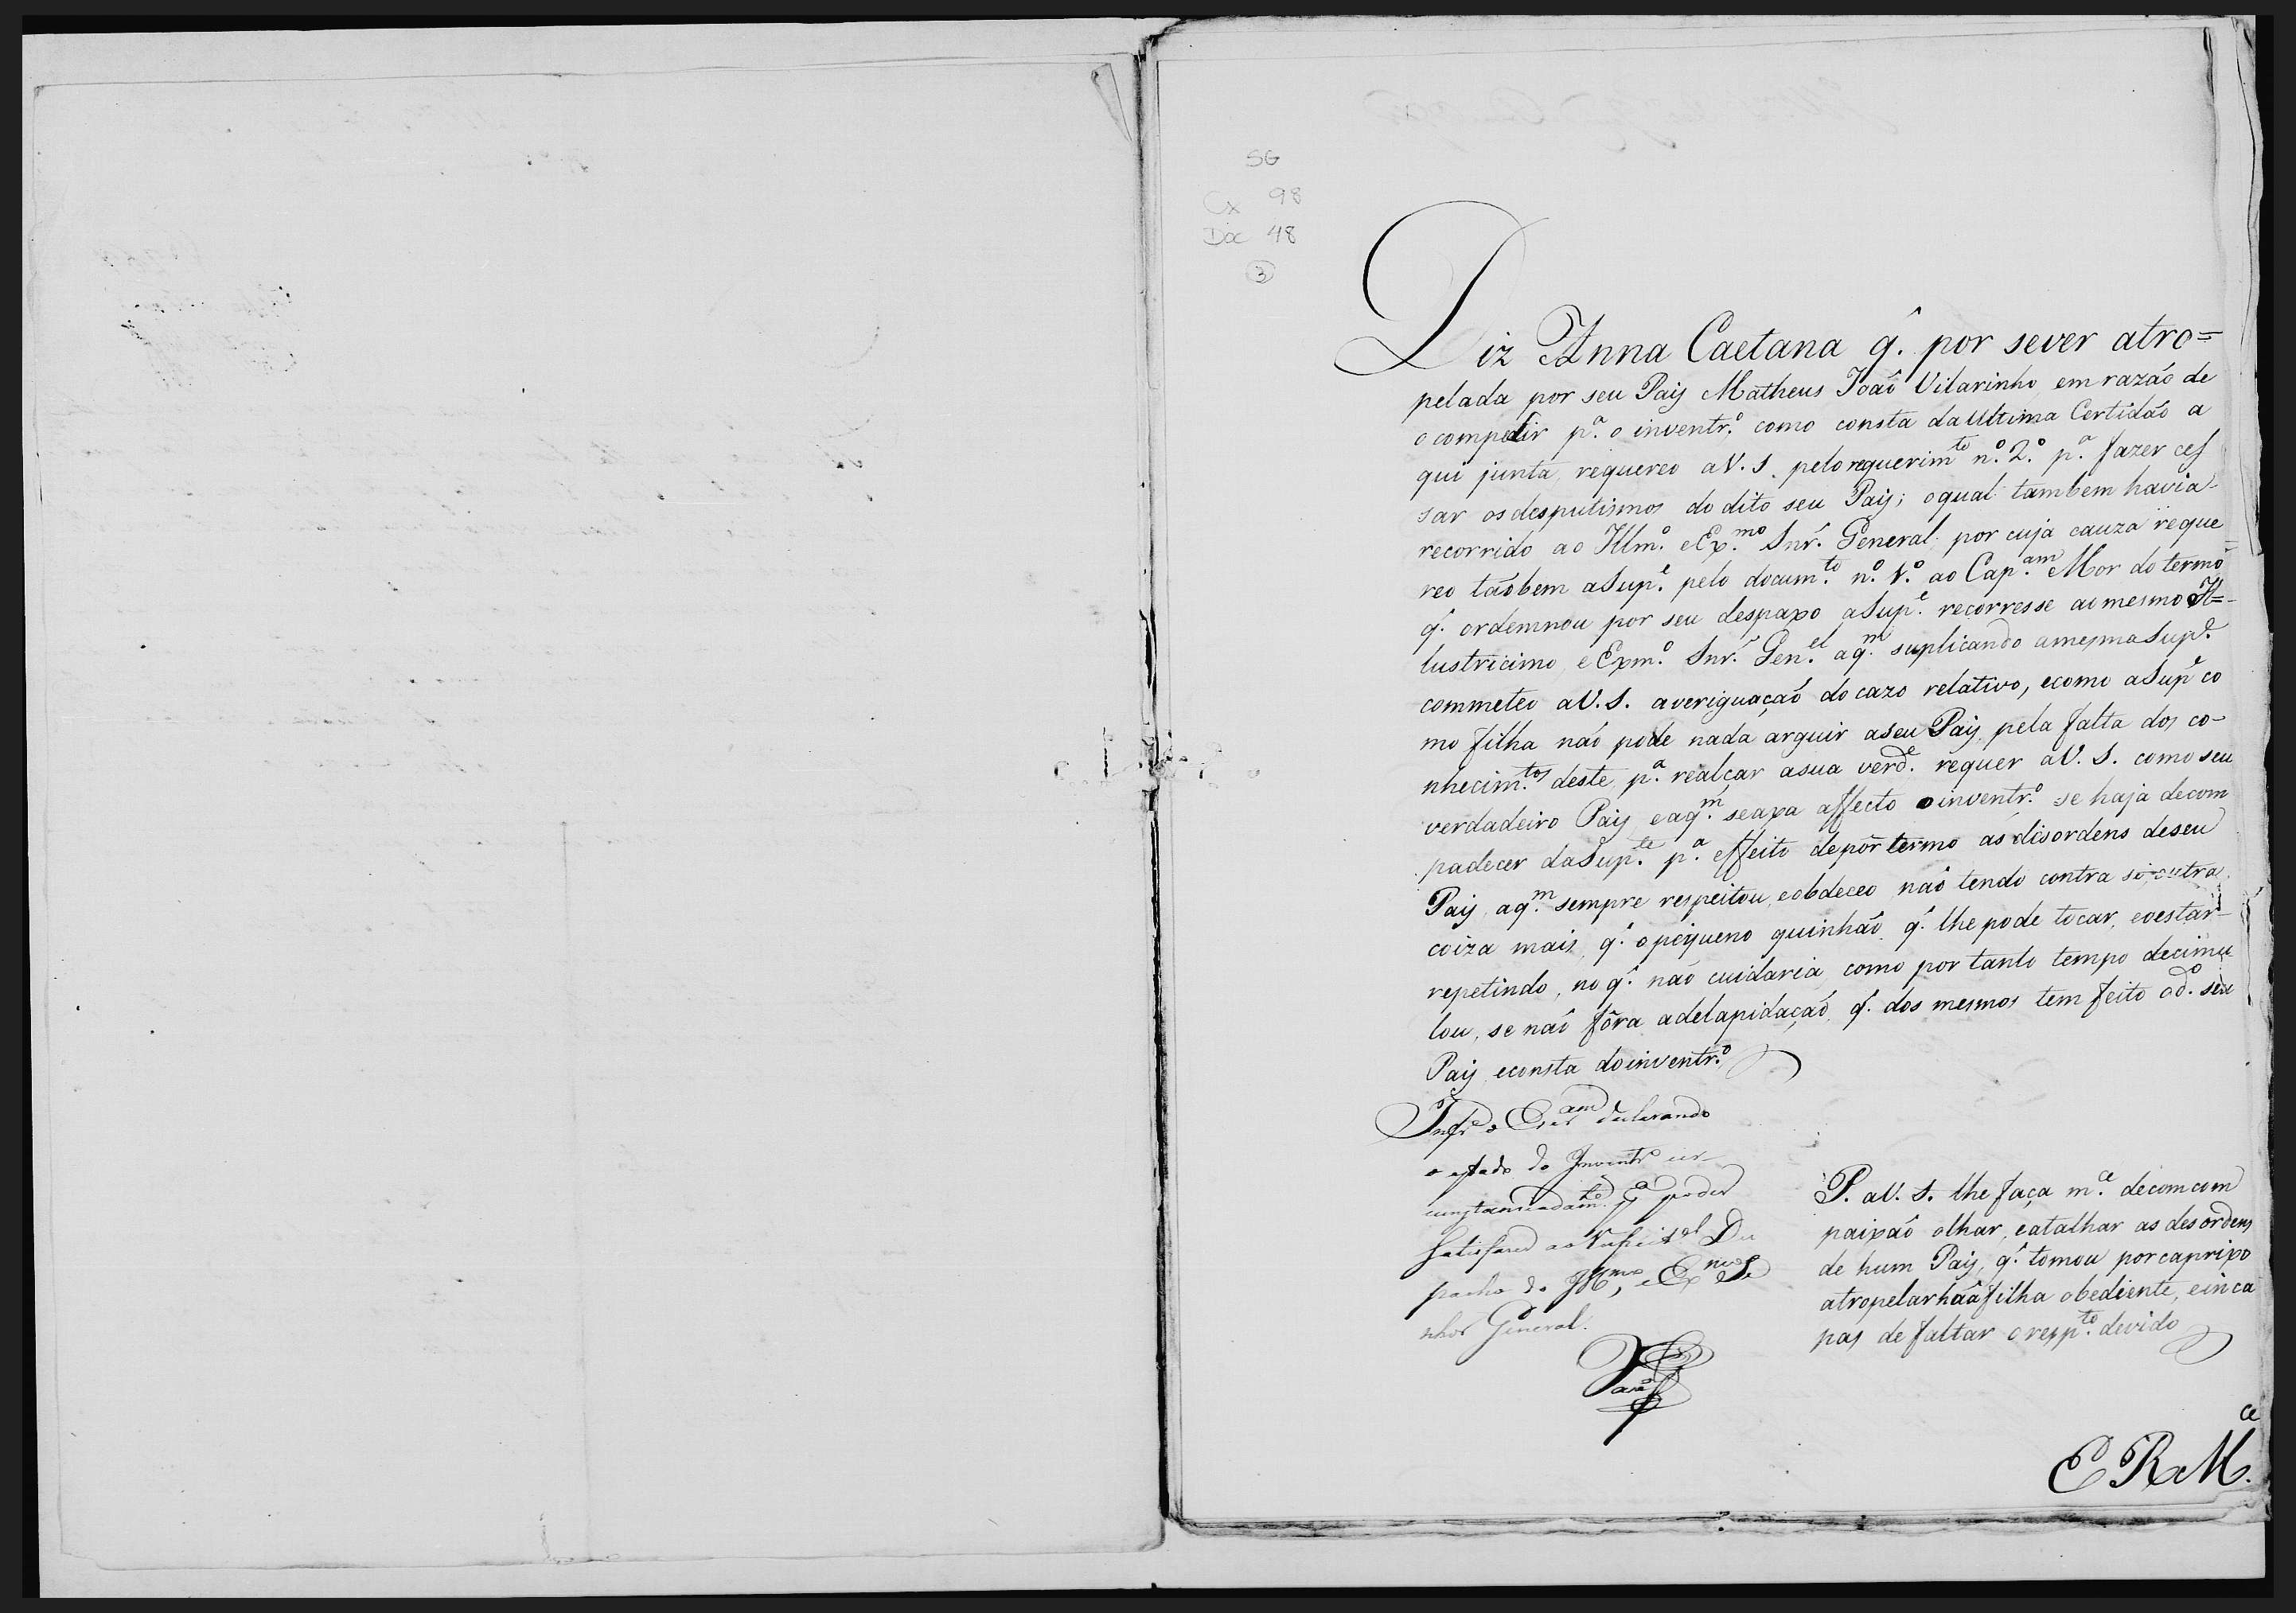 SG
Cx 98
Doc 48
3
Diz Anna Caetana q̂. por sever atro=
pelada por seu Paij Matheus Joaõ Vilarinho em razaõ de
o compelir p.ª o inventr.º como consta da Ultima Certidaõ a
qui junta, requereo aV. S. pelo requerim.to n.º 2.º p.ª fazer ces
sar os desputismos do dito seu Paij; oqual tambem havia
recorrido ao Illm.º eEx.mo Snr. General: por cuja cauza reque
reo taõbem aSup.e pelo docum.to n.º 1.º ao Cap.am Mor do termo
q̂. ordemnou por seu despaxo aSup.e recorresse ao mesmo Il=
lustricimo, e Exm.º Snr. Gen.el aq.m suplicando amesma Sup.e
commeteo aV. S. averiguaçaõ do cazo relativo, ecomo aSup.e co
mo filha naõ pode nada arguir aseu Paij pela falta dos co-
nhecim.tos deste p.ª realçar asua verd.e requer aV. S. como seu
verdadeiro Paij eaq.m seaxa affecto oinventr.º se haja decom
padecer daSup.te p.ª effeito depôr termo as disordens deseu
Paij, aq.m sempre respeitou, eobdeceo naõ tendo contra si outra
coiza mais, q̂. opequeno quinhaõ q̂. lhe pode tocar, eoestar
repetindo, no q̂. naõ cuidaria, como por tanto tempo decimu
lou, se naõ fôra adelapidaçaõ q̂. dos mesmos tem feito od.º seu
Paij, econsta doinventr.º
Infr.e o Escr.am declarando
o estado do Inventr.º cir-
cunstanciadam.te p.ª poder
satisfazer ao Des
pacho do Ill.mo, e Ex.mo Se
nhor General.
P. aV. S. lhe faça m.ce decomcom
paixaõ olhar, eatalhar as desordens
de hum Paij, q̂. tomou por caprixo
atropelar hũa filha obediente, einca
pas de faltar o resp.to devido
E R M.ce